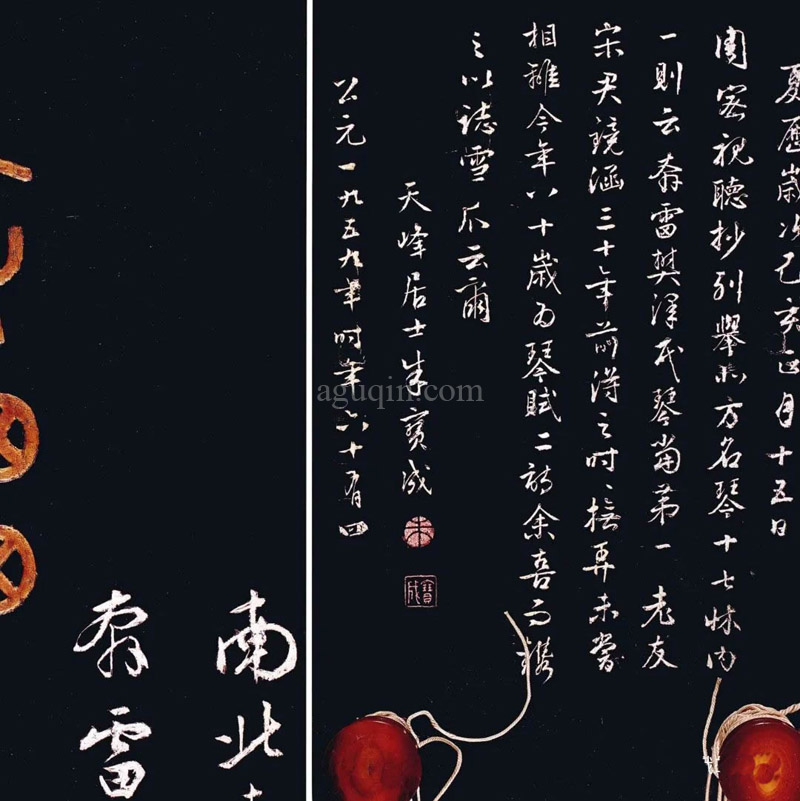 夏曆歲次己亥正月十五日
周密視聽抄列舉北方名琴十七牀內
一則云奔雷樊澤民琴當第一老友
宋君鏡涵三十年前得之時〻撫弄未嘗
相離今年八十歲為琴賦二詩余喜而鐫
之以誌雪爪云爾
天峰居士朱寶成
朱
寶成
公元一九五九年時年六十有四
南北
奔雷
aguqin.com